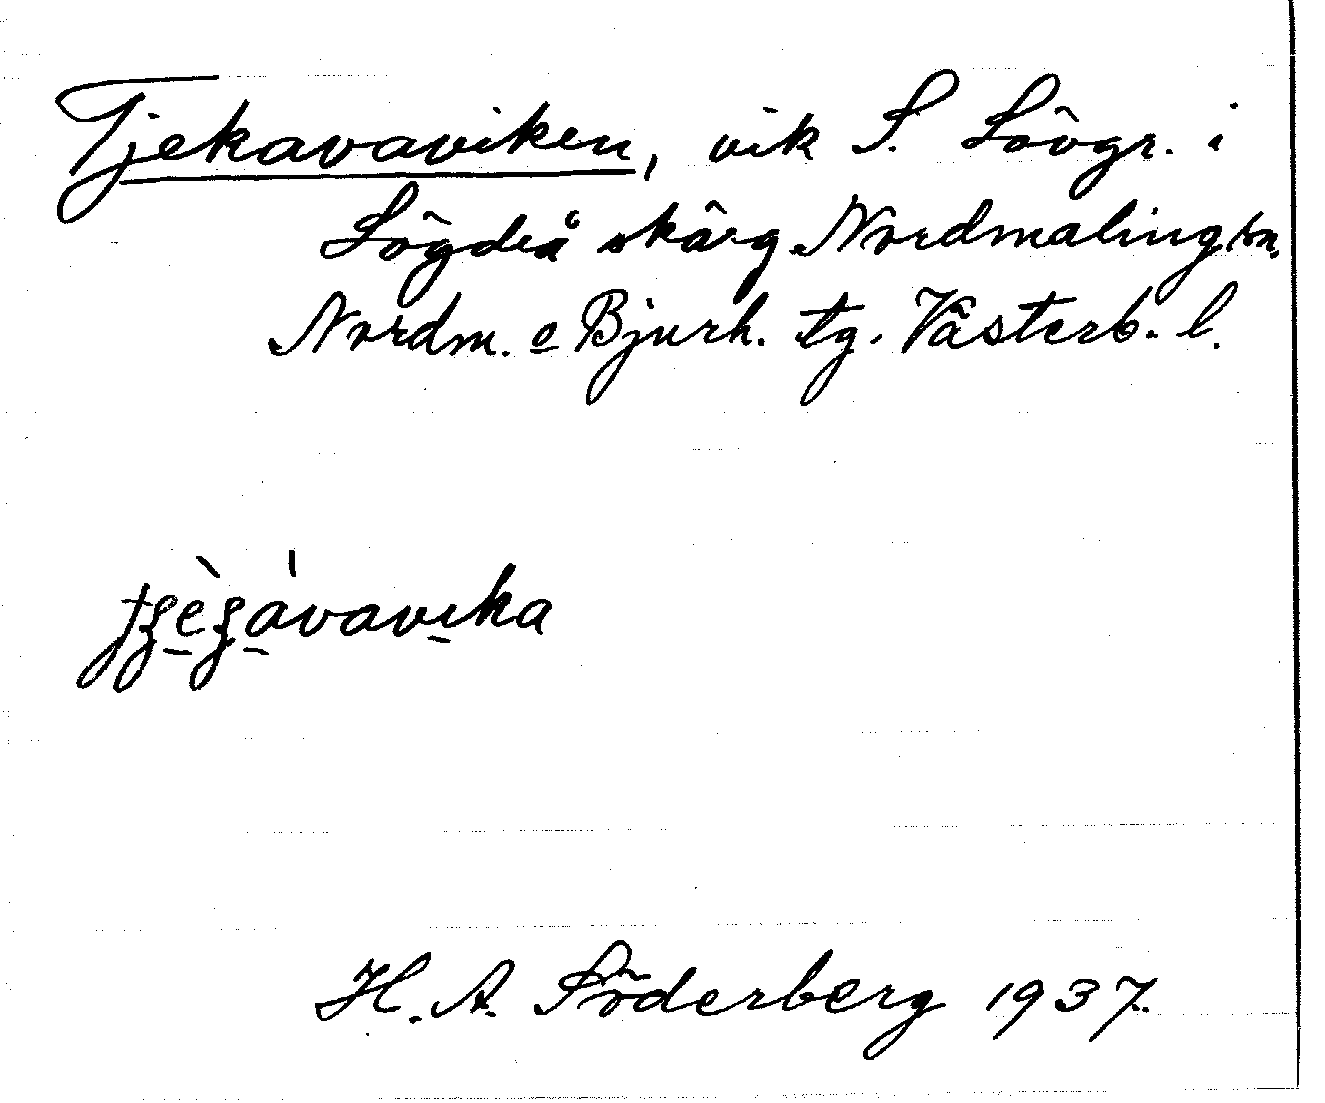 Tjekavaviken, vik S. Lövgr. i
Lögdeå skärg Nordmaling sn.
Nordm. o Bjurh. tg. Västerb. l.
H. A. Söderberg 1937.